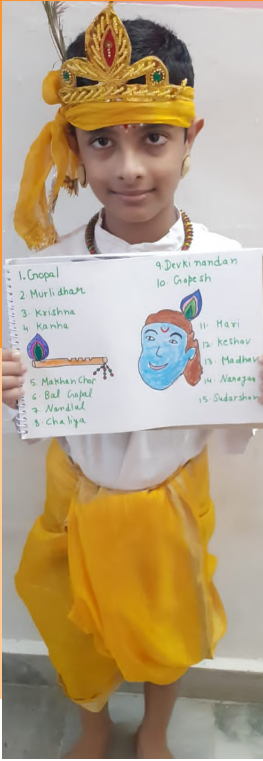 1. Gopal
2. Murlidhar
3. Krishna
4. Kanha
5. Makhan Chor
6. Bal Gopal
7. Nandlal
8. Chaliya
9. Devkinandan
10. Gopesh
11. Hari
12. Keshav
13. Madhav
14. Narayan
15. Sudarshan